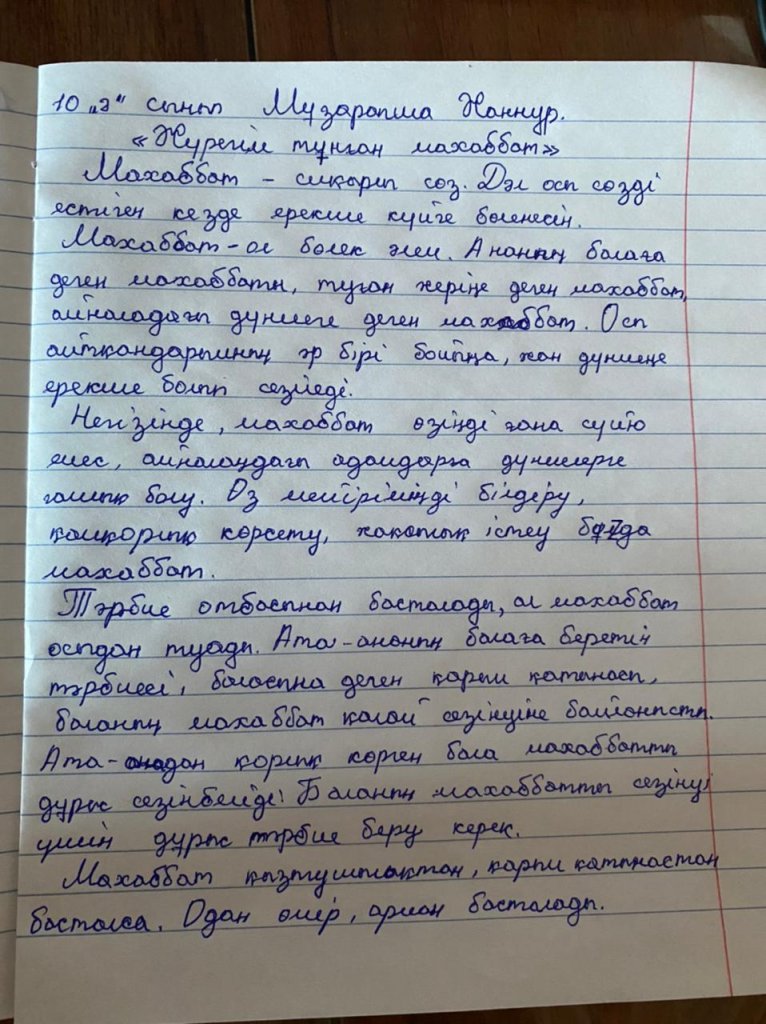 10 "ә" сынып Музарапша Жаннұр.
«Жүрегім тұнған махаббат»
Махаббат – сиқырлы сөз. Дәл осы сөзді
естіген кезде ерекше күйге бөленесің.
Махаббат – ол бөлек әлем. Ананың балаға
деген махаббаты, туған жеріңе деген махаббат,
айналадағы дүниеге деген махаббат. Осы
айтқандарымның әр бірі бойыңа, жан дүниеңе
ерекше болып сезіледі.
Негізінде, махаббат өзіңді ғана сүйю
емес, айналаңдағы адамдарға дүниелерге
ғашық болу. Өз мейіріміңді білдіру,
қамқорлық көрсету, жақсылық істеу бұл да
махаббат.
Тәрбие отбасынан басталады, ал махаббат
осыдан туады. Ата-ананың балаға беретін
тәрбиесі, баласына деген қарым қатынасы,
баланың махаббат қалай сезінуіне байланысты.
Ата-анадан қорлық көрген бала махаббатты
дұрыс сезінбейді! Баланың махаббатты сезінуі
үшін дұрыс тәрбие беру керек.
Махаббат қызғушылықтан, қарым қатынастан
басталса. Одан өмір, арман басталады.